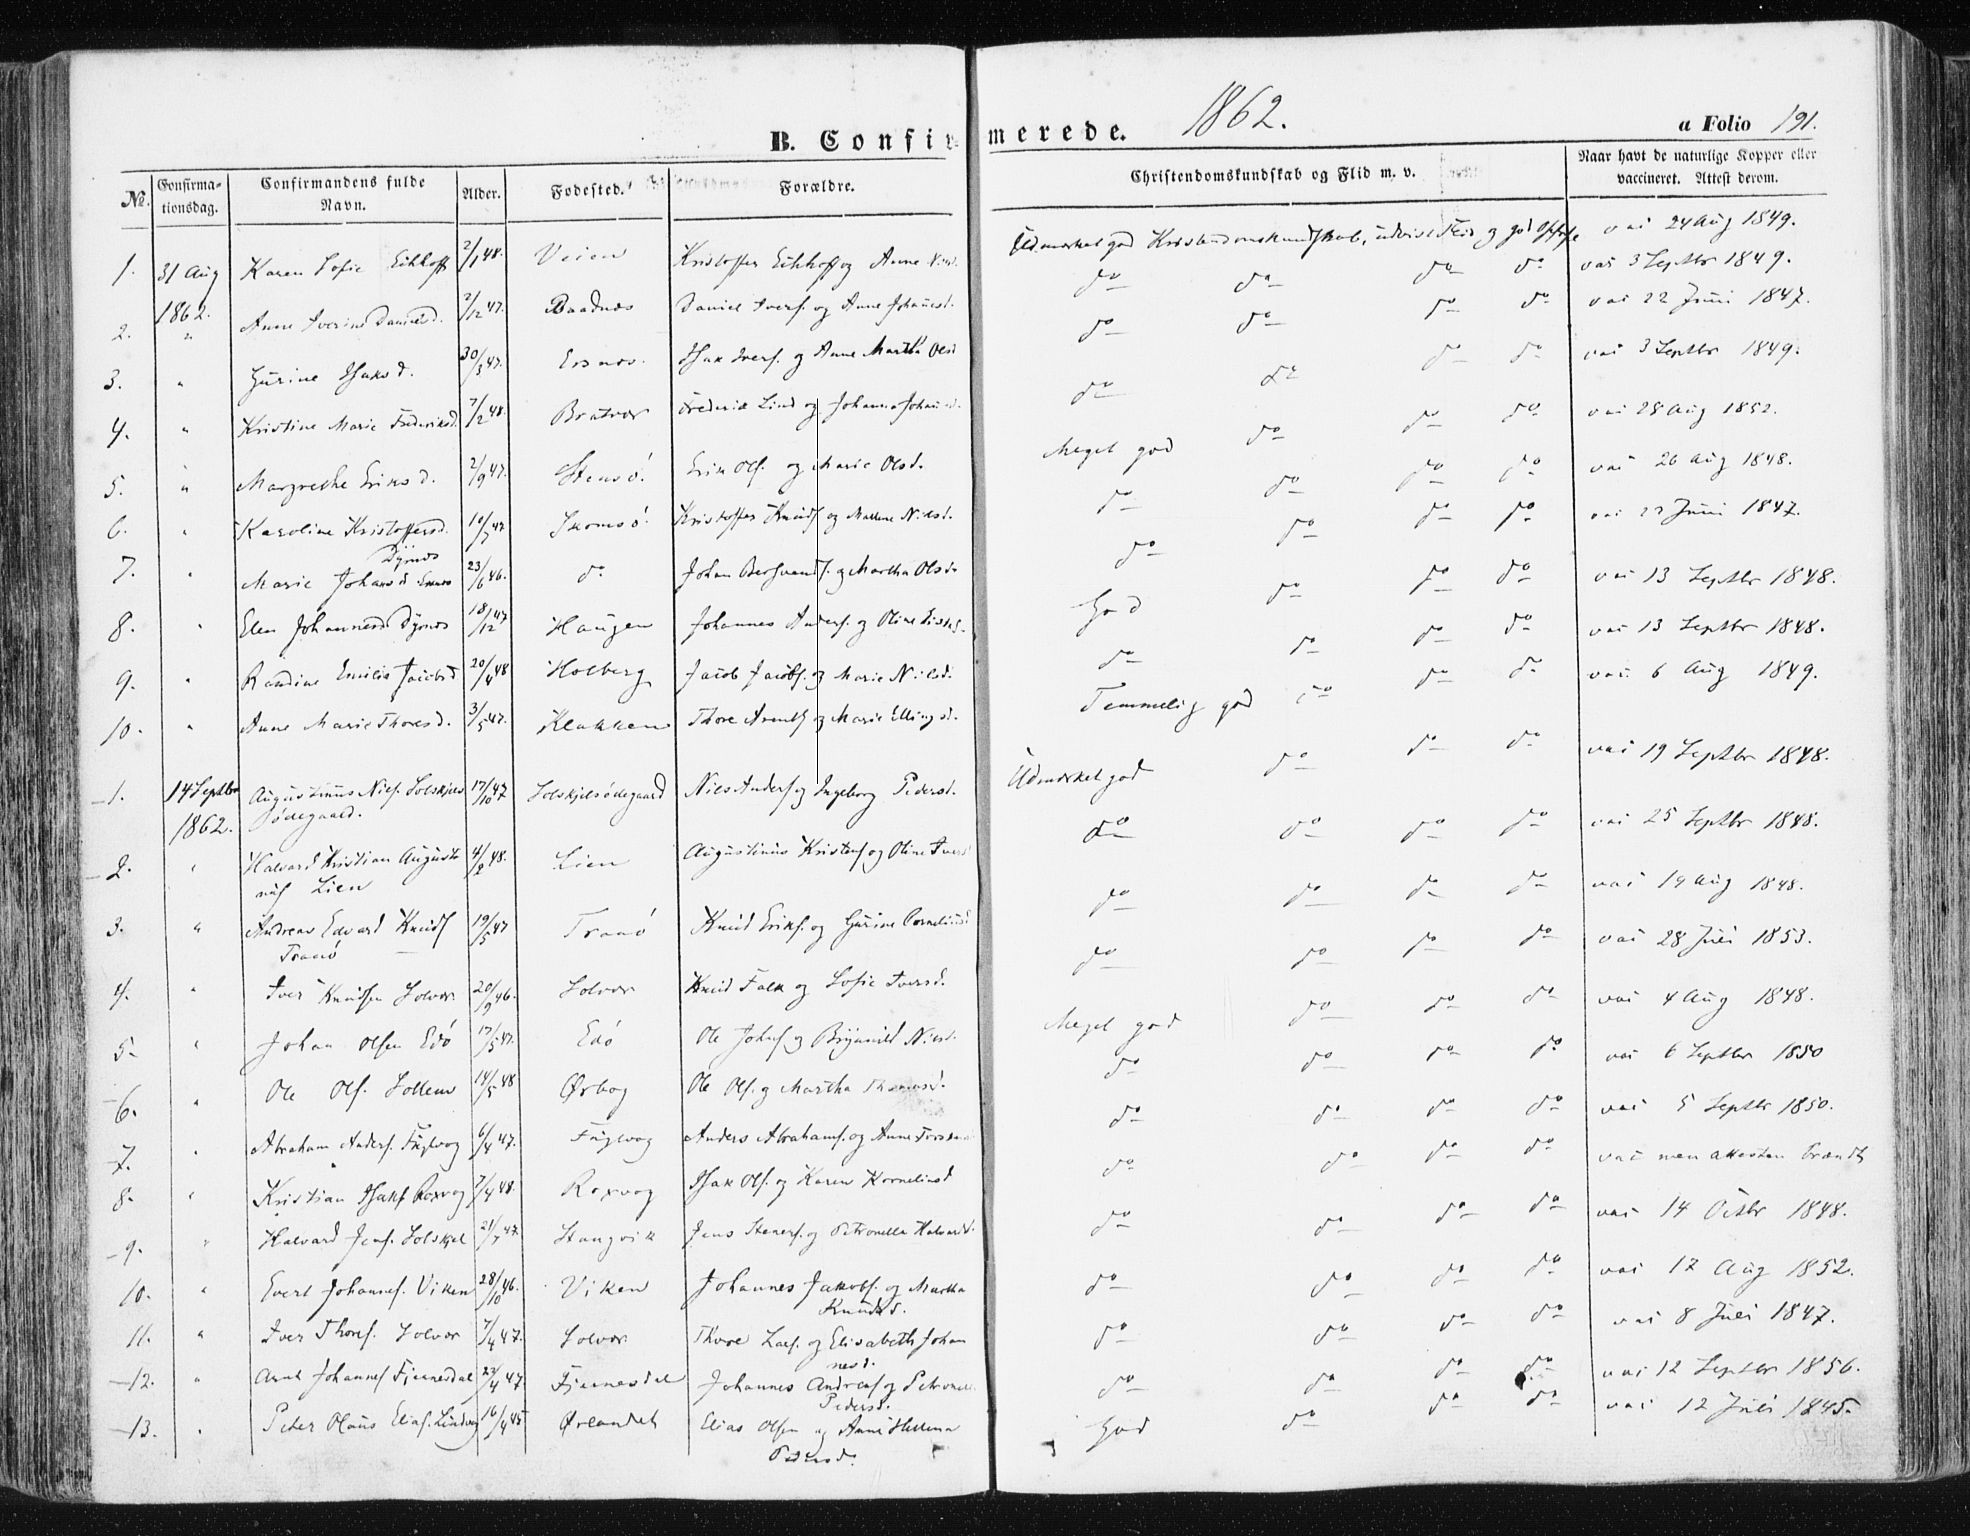 B. Confirmerede. 1862. a Folio 191.
No. Confirmationsdag. Confirmandens fulde Navn. Alder. Fødested. Forældre. Christendomskundskab og Flid m. v. Naar havt de naturlige Kopper eller vaccineret. Attest derom.
1. 31 Aug 1862. Karen Sofie Eikhoff 2/1 48. Veien Kristoffer Eikhoff og Anne Udmærket god Kristendomskundskab, udvist Flid og god vac 24 Aug 1849.
2. " Anne Iverine Danielsd. 2/12 47. Baadnes Daniel Ivers. og Anne Johansd. do do do do vac 3 Septbr 1849.
3. " Gurine Isaksd. 30/3 47. Esnes. Isak Ivers. og Anne Martha Olsd do do do do vac 22 Juni 1847.
4. " Kristine Marie Frederiksd. 7/2 48. Bratvær Frederik Lind og Johanna do do do do vac 3 Septbr 1849.
5. " Margrethe Eriksd. 2/9 47. Stensø. Erik Ols. og Marie Olsd. Meget god do do do vac 28 Aug 1852.
6. " Karoline Kristoffersd. 10/7 47 Skomsø. Kristoffer Knuds og Mallene Nilsd. do do do do vac 26 Aug 1848.
7. " Marie Johansd Dyrnes 23/6 46. do Johan og Martha Olsd. do do do do vac 22 Juni 1847.
8. " Elen Johannesd Dyrnes 18/12 47 Haugen Johannes Anders. og Oline God do do do vac 13 Septbr 1848.
9. " Randine Emilie Jacobsd 20/4 48 Holberg Jacob Jacobs. og Marie Nilsd. do do do do vac 13 Septbr 1848.
10. " Anne Marie Thoresd. 3/5 47. Klakken Thore Arents og Marie Ellingsd. Temmelig god do do do vac. 6 Aug 1849.
1. 14 Septbr 1862. Augustinus Nils. Solskjels ødegaard. 17/10 47 Solskjelsødegaard Nils Anders og Ingeborg Pedersd. Udmærket god do do do vac 19 Septbr 1848.
2. " Halvard Kristian Augusti nus Lien 4/2 48. Lien Augustinus Kristens og Oline Ivers do do do do vac 25 Septbr 1848.
3. " Andreas Edvard Knuds Tranø 19/5 47 Tranø Knud Eriks. og Gurine Corneliusd do do do do vac 19 Aug 1848.
4. " Iver Knudsen Solvær 20/9 46. Solvær Knud Falk og Sofie Iversd. do do do do vac 28 Juli 1853.
5. " Johan Olsen Edø 17/5 47. Edø Ole Johns og Brynild Nilsd. Meget god do do do vac 4 Aug 1848.
6. " Ole Ols. Sollem 14/5 48 Ørbog Ole Ols. og Martha Thomasd. do do do do vac 6 Septbr 1850
7. " Abraham Anders. Fuglvog 6/4 47. Fuglvog Anders Abrahams. og Anne do do do do vac 5 Septbr 1850.
8. " Kristian Isaks Roxvog 7/4 48. Roxvog Isak Ols. og Karen Korneliusd do do do do vac men attesten brændt
9. " Halvard Jens. Solskjel 21/7 47. Stangvik Jens Steners. og Petronella Halvardsd. do do do do vac 14 Octbr 1848.
10. " Evert Johannes. Viken 28/10 46. Viken Johannes Jakobs. og Martha Knudsd. do do do do vac 17 Aug 1852.
11. " Iver Thores. Solvær 7/4 47. Solvær Thore Lars. og Elisabeth Johan nesd. do do do do vac 8 Juli 1847.
12. " Arnt Johannes Fjernesdal 23/4 47. Fjernesdal Johannes Andreas og Petronel Pedersd. do do do do vac 12 Septbr 1856.
13. " Peter Olaus Elias. Lindvog 16/4 45 Ørlandet Elias Olsen og Anne Hellena Pedersd. God do do do vac 12 Juli 1845.